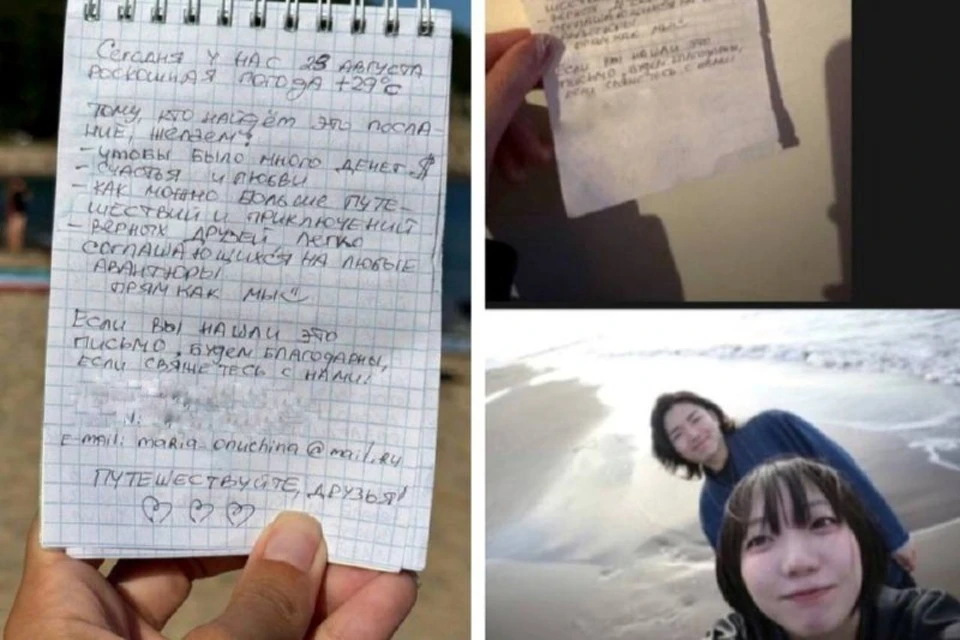 Сегодня у нас 23 августа
роскошная погода +29°с
Тому, кто найдём это посла-
ние, желаем:
- чтобы было много денег $
- счастья и любви
- как можно больше путе-
шествий и приключений
- верных друзей легко
соглашающихся на любые
авантюры
прям как мы
Если вы нашли это
письмо, будем благодарны,
если свяжетесь с нами!
E-mail: maria_onuchina@mail.ru
Путешествуйте, друзья!
соглашающихся на
авантюры
прям как мы
Если вы нашли это
письмо будем благодарны,
если свяжетесь с нами